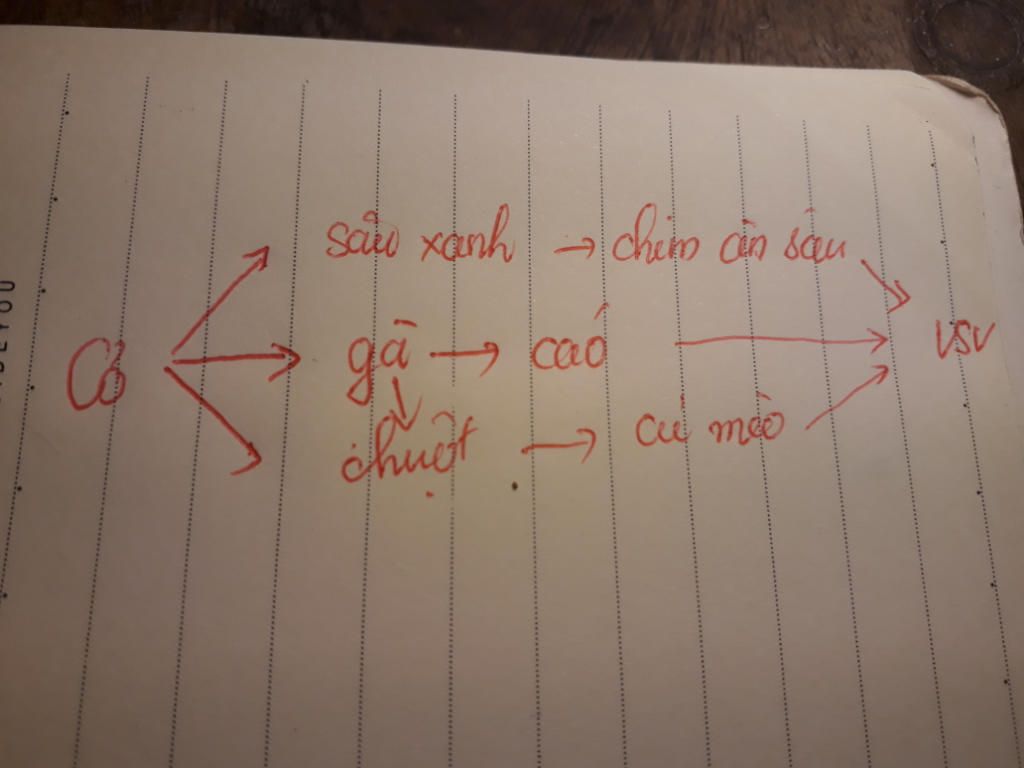 sâu xanh → chim ăn sâu
Cỏ → gà → caó → VSV
chuột → cú mèo